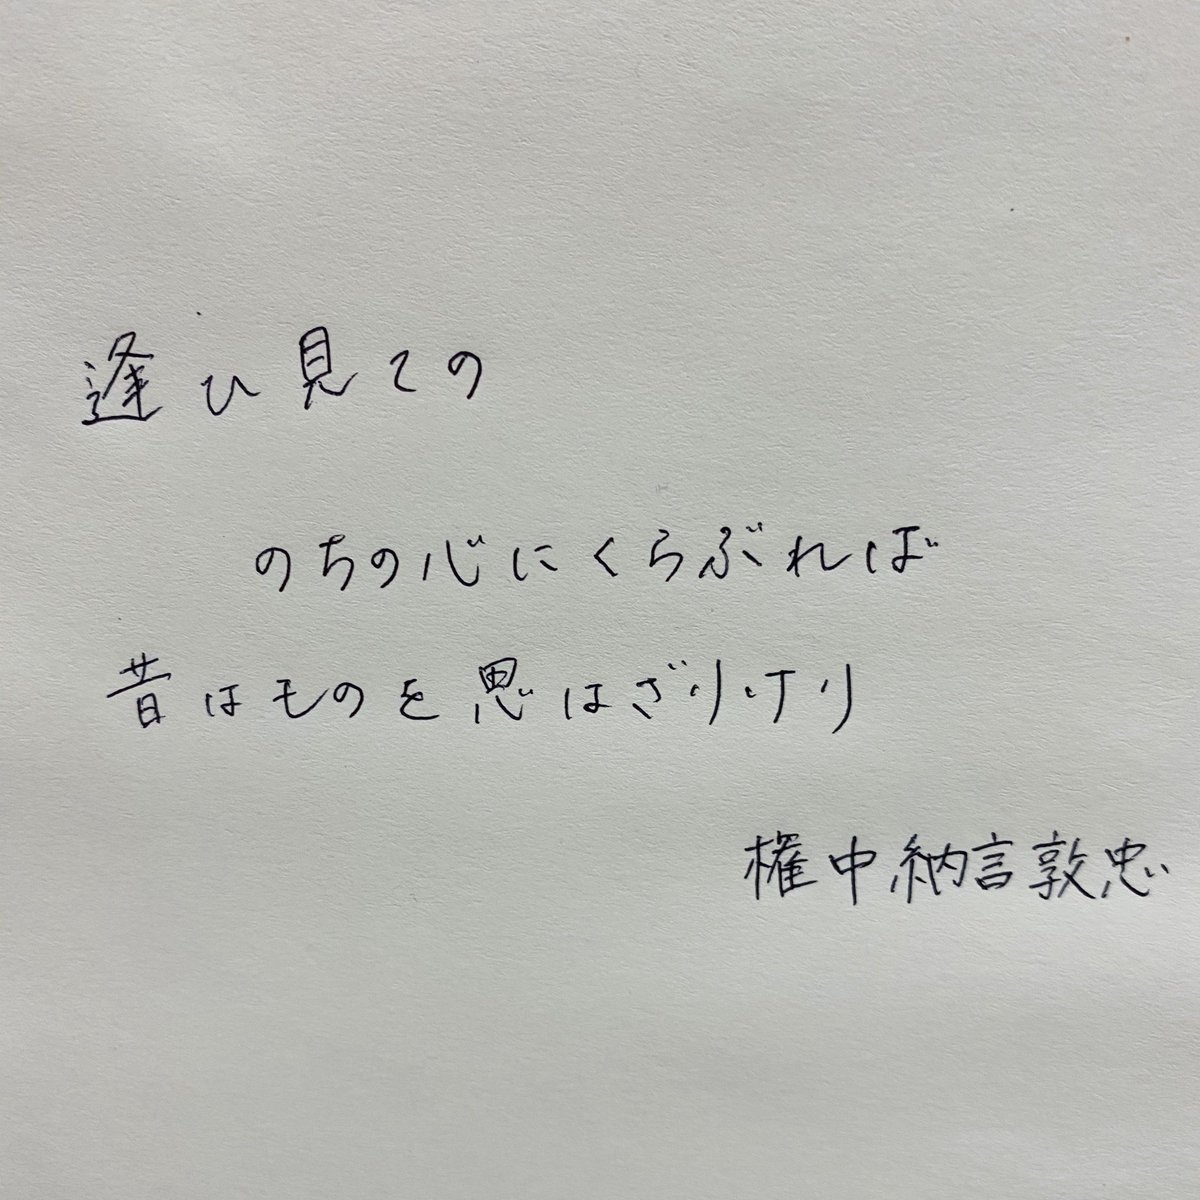 逢ひ見ての
のちの心にくらぶれば
昔はものを思はざりけり
権中納言敦忠